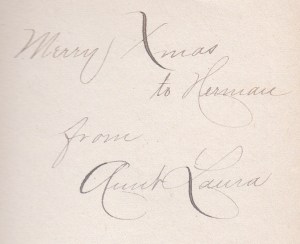 Merry Xmas
to Herman
from
Aunt Laura